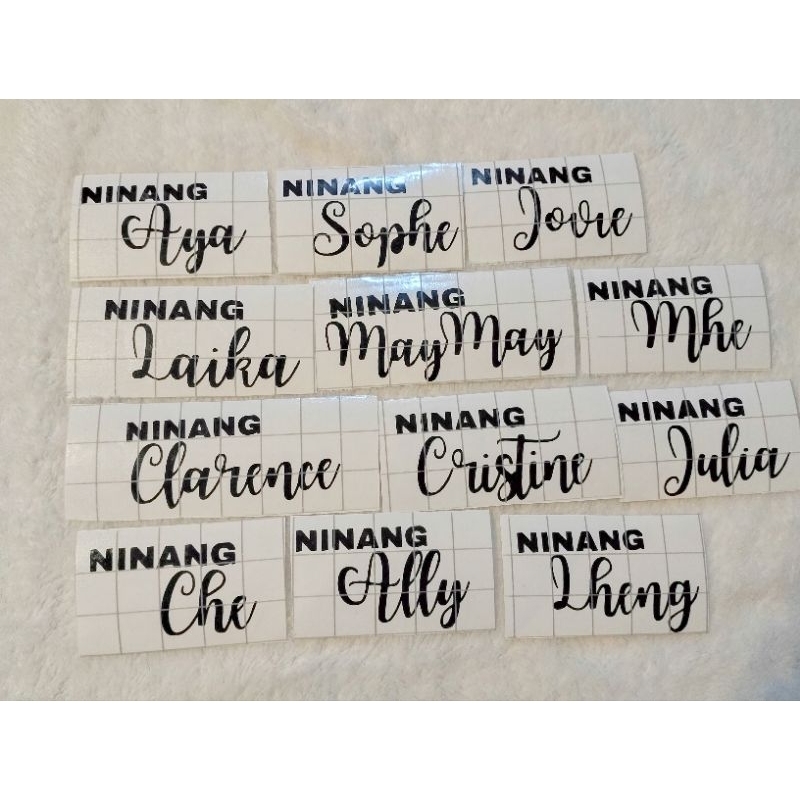 NINANG
Aya
NINANG
Sophe
NINANG
Jovie
NINANG
Laika
NINANG
MayMay
NINANG
Mhe
NINANG
Clarence
NINANG
Cristine
NINANG
Julia
NINANG
Che
NINANG
Ally
NINANG
Lheng